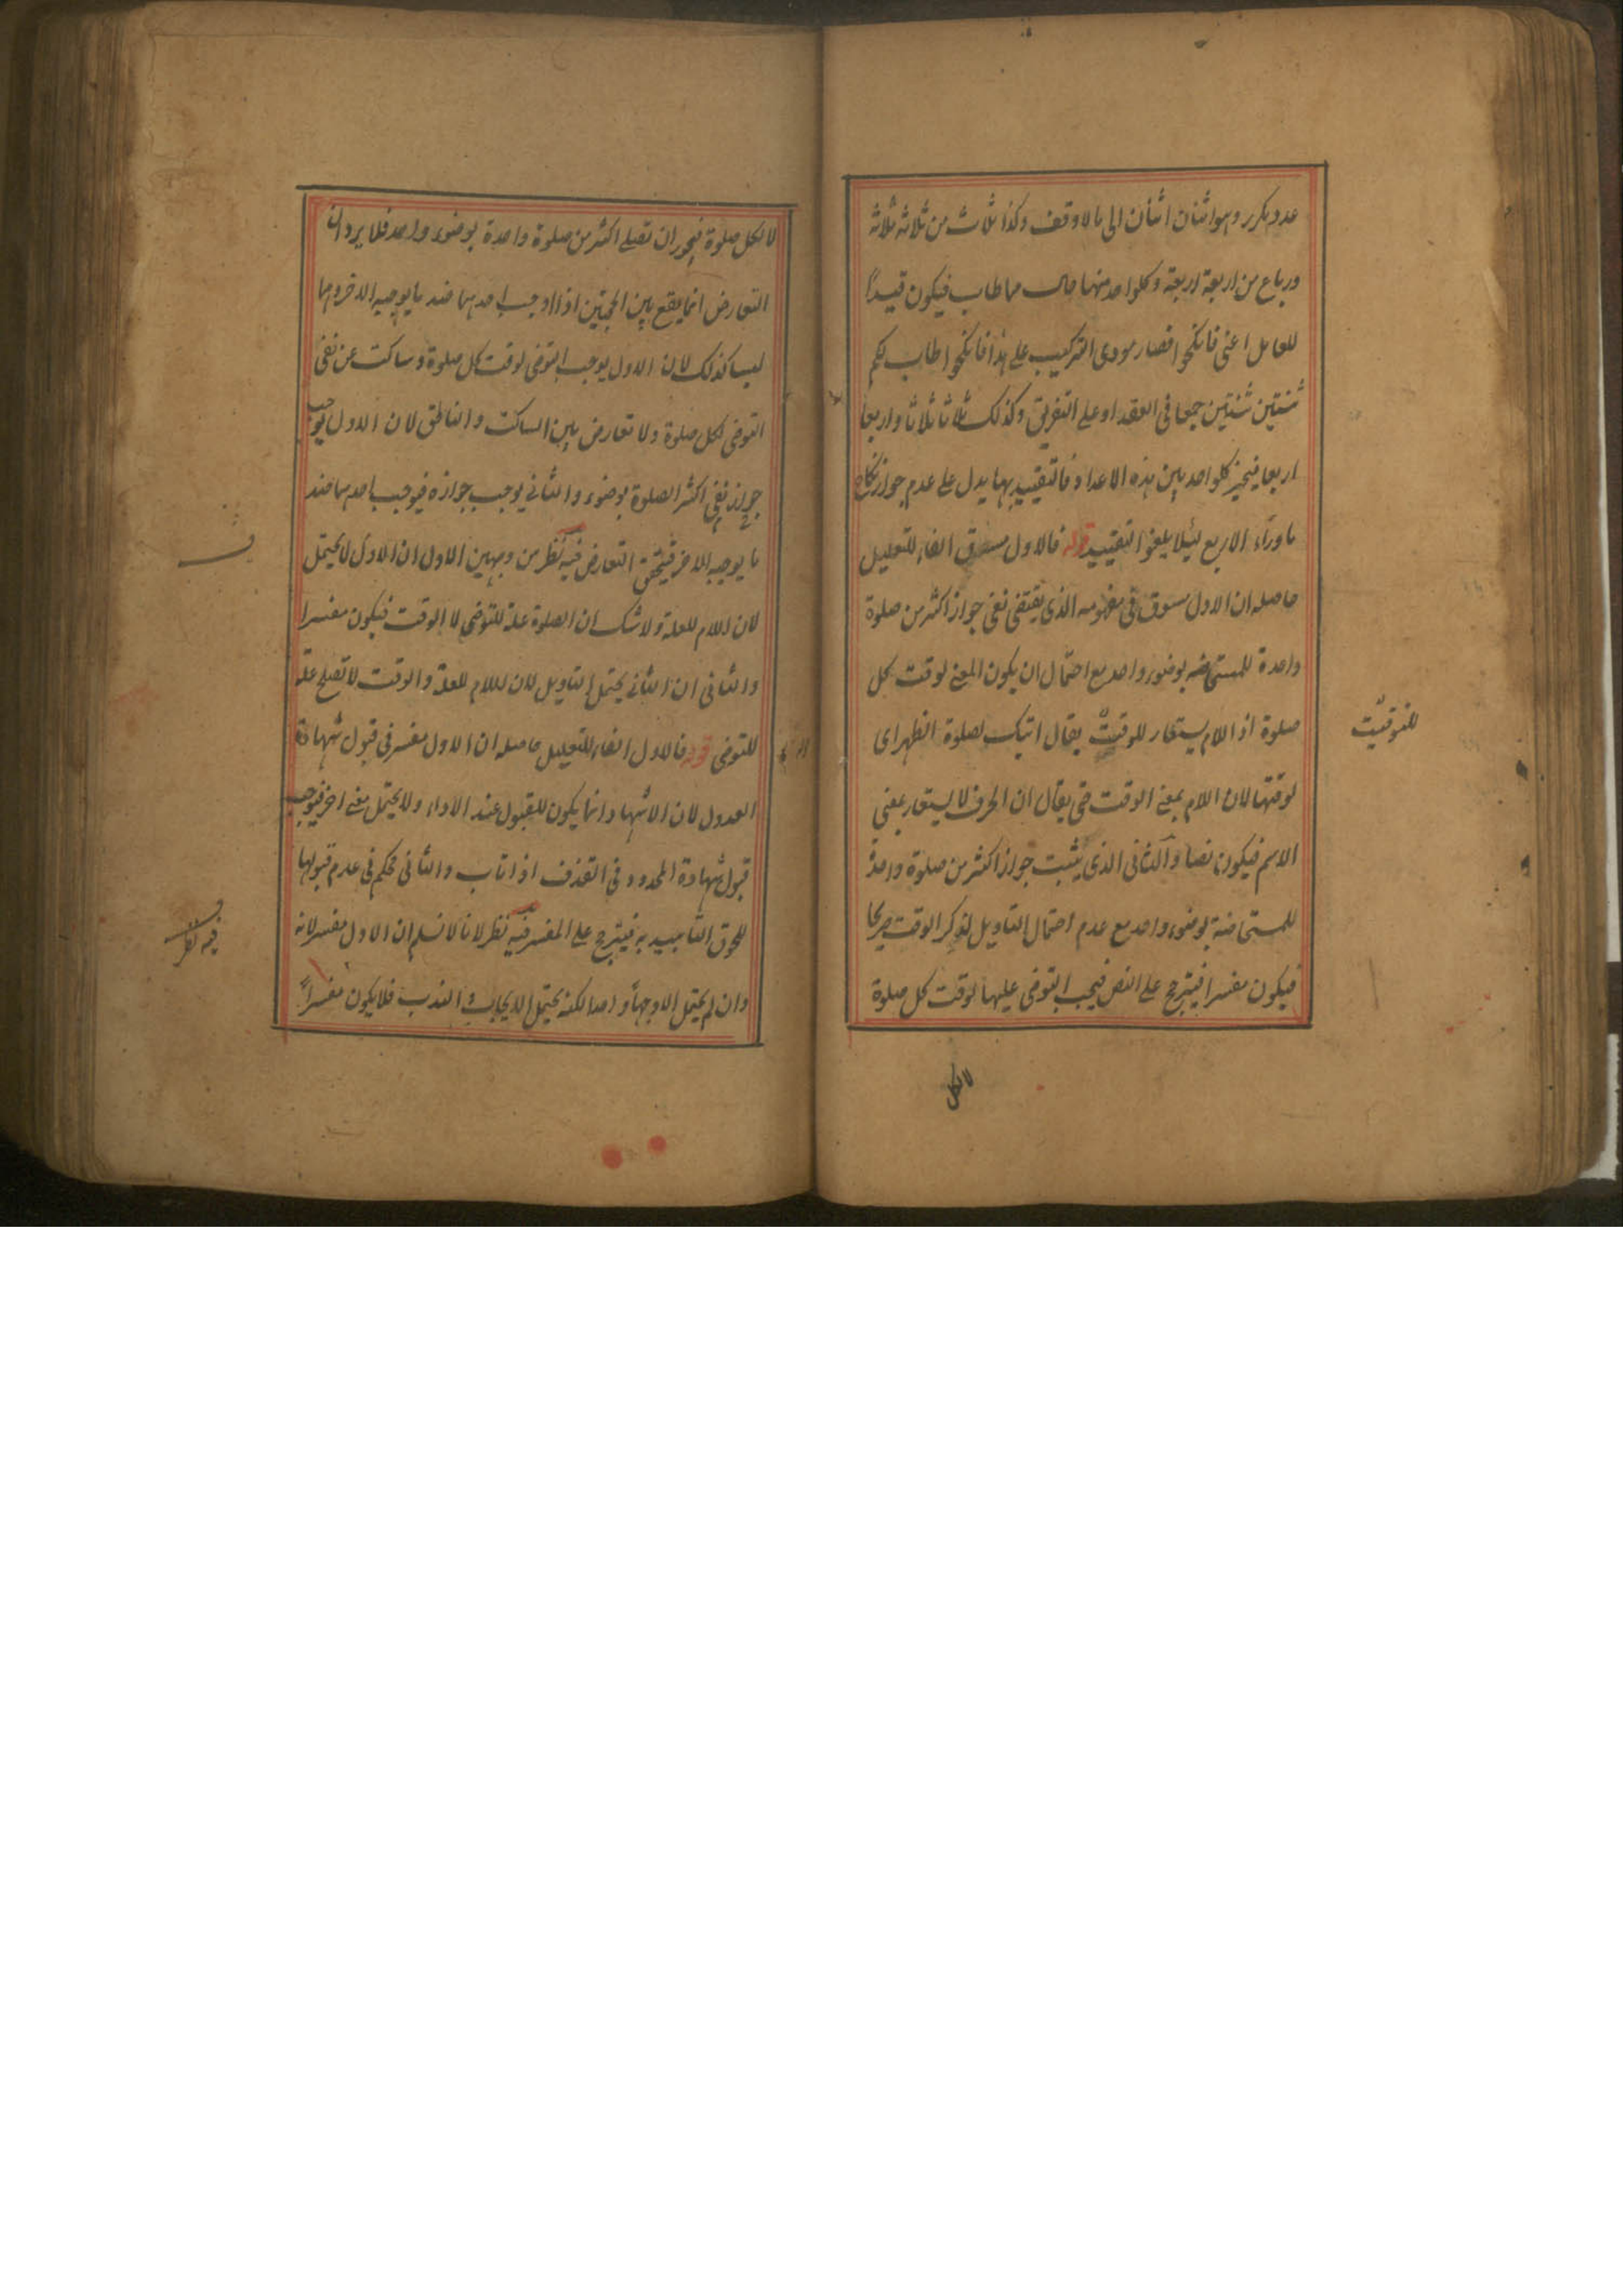 عدد مكرر وهو اثنان اثنان الى ما لا وقف وكذا ثلاث من ثلاثة ثلاثة
ورباع من اربعة اربعة وكلواحد منها حال مما طاب فيكون قيدًا
للعامل اعنى فانكحوا فصار مودى التركيب على هذا فانكحوا ما طاب لكم
ثنتين ثنتين جمعا فى العقد او على التفريق وكذلك ثلاثا ثلاثا واربعا
اربعا فيخير كلواحد بين هذه الاعداد فالتقييد بها يدل على عدم جواز نكاح
ماوراء الاربع لئلا يلغوا التقييد قوله فالاول مسوق الفاء للتعليل
حاصله ان الاول مسوق فى مفهومه الذى يقتضى نفى جواز اكثر من صلوة
واحدة للمستحاضه بوضوء واحد مع احتمال ان يكون المعنى لوقت كل
صلوة اذ اللام يستعار للوقت يقال اتيك لصلوة الظهر اى
للتوقيت
لوقتها لان اللام بمعنى الوقت حتى يقال ان الحرف لا يستعار بمعنى
الاسم فيكون نصا والثانى الذى يثبت جواز اكثر من صلوة واحدة
للمستحاضة بوضوء واحد مع عدم احتمال التاويل لذكر الوقت صريحا
فيكون مفسرا فيترجح على النص فيجب التوضى عليها لوقت كل صلوة
لا لكل
لا لكل صلوة فيجوز ان تصلى اكثر من صلوة واحدة بوضوء واحد فلا يرد ان
التعارض انما يقع بين الحجتين اذا اوجب احدهما ضد ما يوجبه الاخر وهما
ليسا كذلك لان الاول يوجب التوضى لوقت كل صلوة وساكت عن نفى
التوضى لكل صلوة ولا تعارض بين الساكت والناطق لان الاول يوجب
جواز نفى اكثر الصلوة بوضوء والثانى يوجب جوازه فيوجب احدهما ضد
ما يوجبه الاخر فيتحقق التعارض فيه نظر من وجهين الاول ان الاول لا يحتمل
لان اللام للعلة ولا شك ان الصلوة علة للتوضى لا الوقت فيكون مفسرا
والثانى ان الثانى يحتمل التاويل لان اللام للعلة والوقت لا تصلح علة
للتوضى قوله فالاول الفاء للتعليل حاصله ان الاول مفسر فى قبول شهادة
العدول لان الاشهاد انما يكون للقبول عند الاداء ولا يحتمل معنى اخر فيوجب
قبول شهادة المحدود فى القذف اذا تاب والثانى محكم فى عدم قبولها
للحوق التابيد به فيترجح على المفسر فيه نظر لانا لا نسلم ان الاول مفسر لانه
فيه نظر
وان لم يحتمل الا وجهًا واحدا لكنه يحتمل الايجاب و الندب فلا يكون مفسرًا